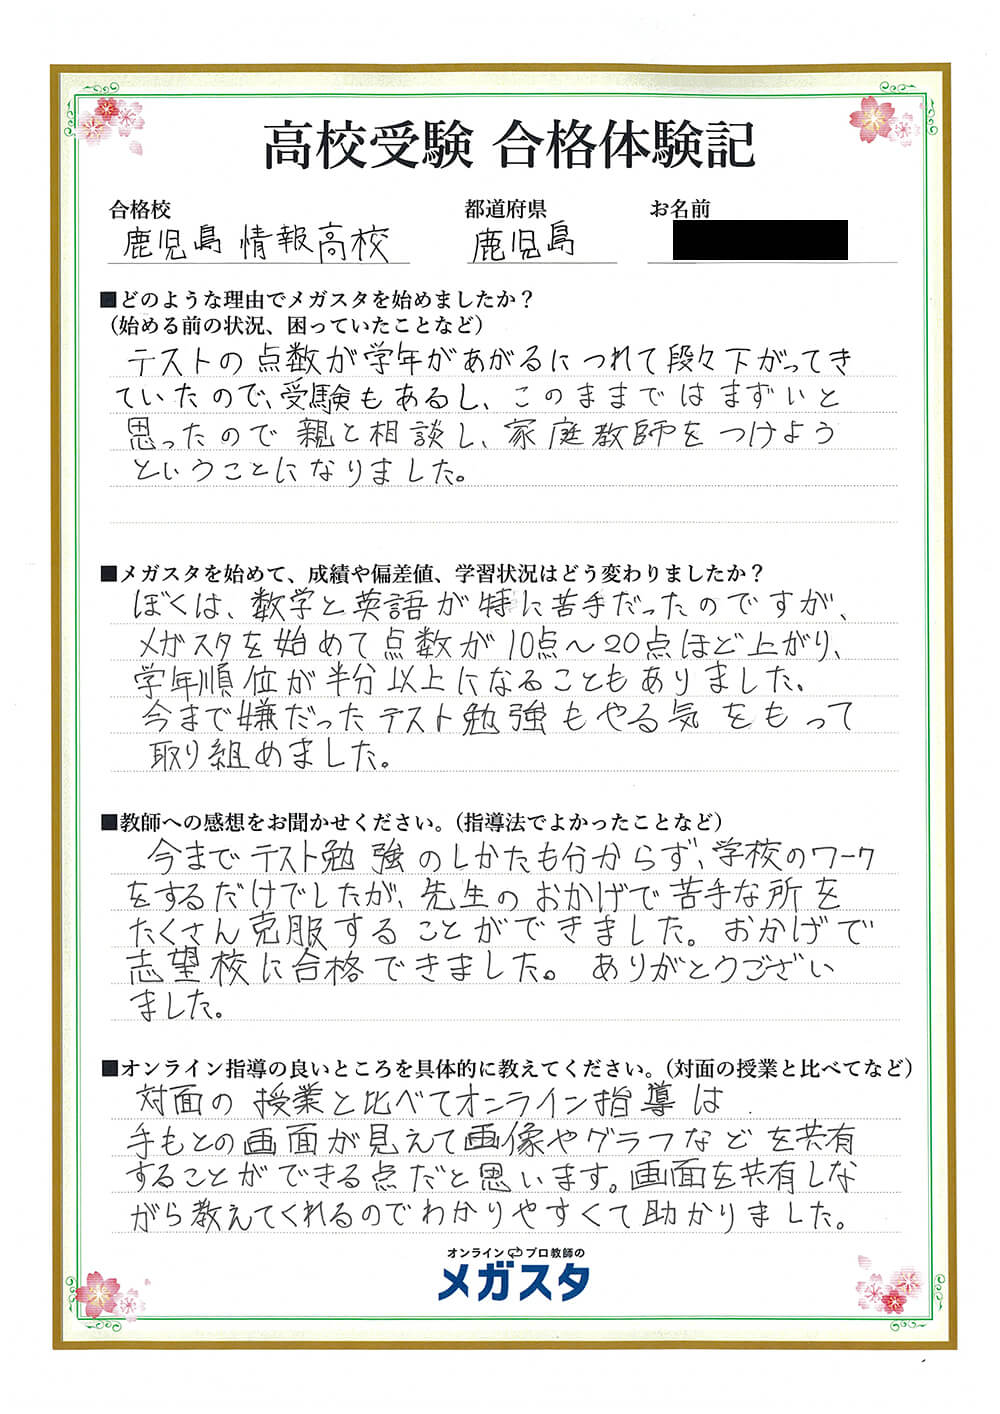 高校受験 合格体験記
合格校 都道府県 お名前
鹿児島 情報高校 鹿児島
■どのような理由でメガスタを始めましたか？
（始める前の状況、困っていたことなど）
テストの点数が学年があがるにつれて段々下がってき
ていたので、受験もあるし、このままではまずいと
思ったので親と相談し、家庭教師をつけよう
ということになりました。
■メガスタを始めて、成績や偏差値、学習状況はどう変わりましたか？
ぼくは、数学と英語が特に苦手だったのですが、
メガスタを始めて点数が10点～20点ほど上がり、
学年順位が半分以上になることもありました。
今まで嫌だったテスト勉強もやる気をもって
取り組めました。
■教師への感想をお聞かせください。（指導法でよかったことなど）
今までテスト勉強のしかたも分からず、学校のワーク
をするだけでしたが、先生のおかげで苦手な所を
たくさん克服することができました。おかげで
志望校に合格できました。ありがとうござい
ました。
■オンライン指導の良いところを具体的に教えてください。（対面の授業と比べてなど）
対面の授業と比べてオンライン指導は
手もとの画面が見えて画像やグラフなどを共有
することができる点だと思います。画面を共有しな
がら教えてくれるのでわかりやすくて助かりました。
オンライン プロ教師の
メガスタ